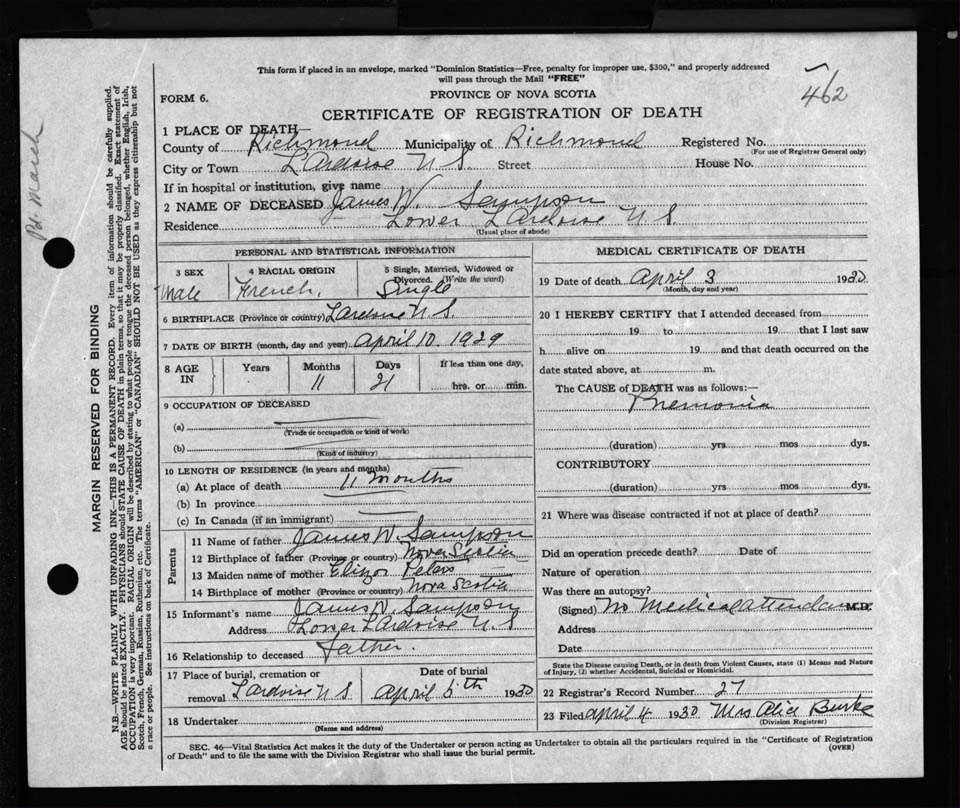 This form if placed in an envelope, marked "Dominion Statistics—Free, penalty for improper use, $300," and properly addressed
will pass through the Mail "FREE"
462
FORM 6.
PROVINCE OF NOVA SCOTIA
CERTIFICATE OF REGISTRATION OF DEATH
1 PLACE OF DEATH—
County of Richmond Municipality of Richmond Registered No.
(For use of Registrar General only)
City or Town L'Ardoise N S Street House No.
If in hospital or institution, give name
2 NAME OF DECEASED James W. Sampson
Residence Lower L'Ardoise N. S.
(Usual place of abode)
PERSONAL AND STATISTICAL INFORMATION
3 SEX
Male
4 RACIAL ORIGIN
French.
5 Single, Married, Widowed or
Divorced. (Write the word)
Single
6 BIRTHPLACE (Province or country) L'ardoise N S.
7 DATE OF BIRTH (month, day and year) April 10. 1929
8 AGE
IN
Years
Months
11
Days
21
If less than one day,
hrs. or min.
9 OCCUPATION OF DECEASED
(a)
(Trade or occupation or kind of work)
(b)
(Kind of industry)
10 LENGTH OF RESIDENCE (in years and months)
(a) At place of death 11 months
(b) In province
(c) In Canada (if an immigrant)
Parents
11 Name of father James W. Sampson
12 Birthplace of father (Province or country) Nova Scotia
13 Maiden name of mother Peters
14 Birthplace of mother (Province or country) Nova Scotia
15 Informant's name James W. Sampson
Address Lower L'Ardoise N. S
16 Relationship to deceased father.
17 Place of burial, cremation or
removal L'ardoise N S
Date of burial
April 5th 1930
18 Undertaker
(Name and address)
MEDICAL CERTIFICATE OF DEATH
19 Date of death April 3 1930
(Month, day and year)
20 I HEREBY CERTIFY that I attended deceased from
19 to 19 that I last saw
h alive on 19 and that death occurred on the
date stated above, at m.
The CAUSE of DEATH was as follows:—
Pnemonia
(duration) yrs mos dys.
CONTRIBUTORY
(duration) yrs mos dys.
21 Where was disease contracted if not at place of death?
Did an operation precede death? Date of
Nature of operation
Was there an autopsy?
(Signed) No Medical attendance M.D.
Address
Date
State the Disease causing Death, or in death from Violent Causes, state (1) Means and Nature
of Injury, (2) whether Accidental, Suicidal or Homicidal.
22 Registrar's Record Number 27
23 Filed April 4 1930 Mrs Alice Burke
(Division Registrar)
SEC. 46—Vital Statistics Act makes it the duty of the Undertaker or person acting as Undertaker to obtain all the particulars required in the "Certificate of Registration
of Death" and to file the same with the Division Registrar who shall issue the burial permit.
(OVER)
MARGIN RESERVED FOR BINDING
N.B.—WRITE PLAINLY WITH UNFADING INK—THIS IS A PERMANENT RECORD. Every item of information should be carefully supplied.
AGE should be stated EXACTLY. PHYSICIANS should STATE CAUSE OF DEATH in plain terms, so that it may be properly classified. Exact statement of
OCCUPATION is very important. RACIAL ORIGIN will be described by stating to what people or tongue the deceased person belonged, whether English, Irish,
Scotch, French, German, Russian, Ruthenian, etc. The terms "AMERICAN" or "CANADIAN" SHOULD NOT BE USED as they express citizenship but not
a race or people. See instructions on back of Certificate.